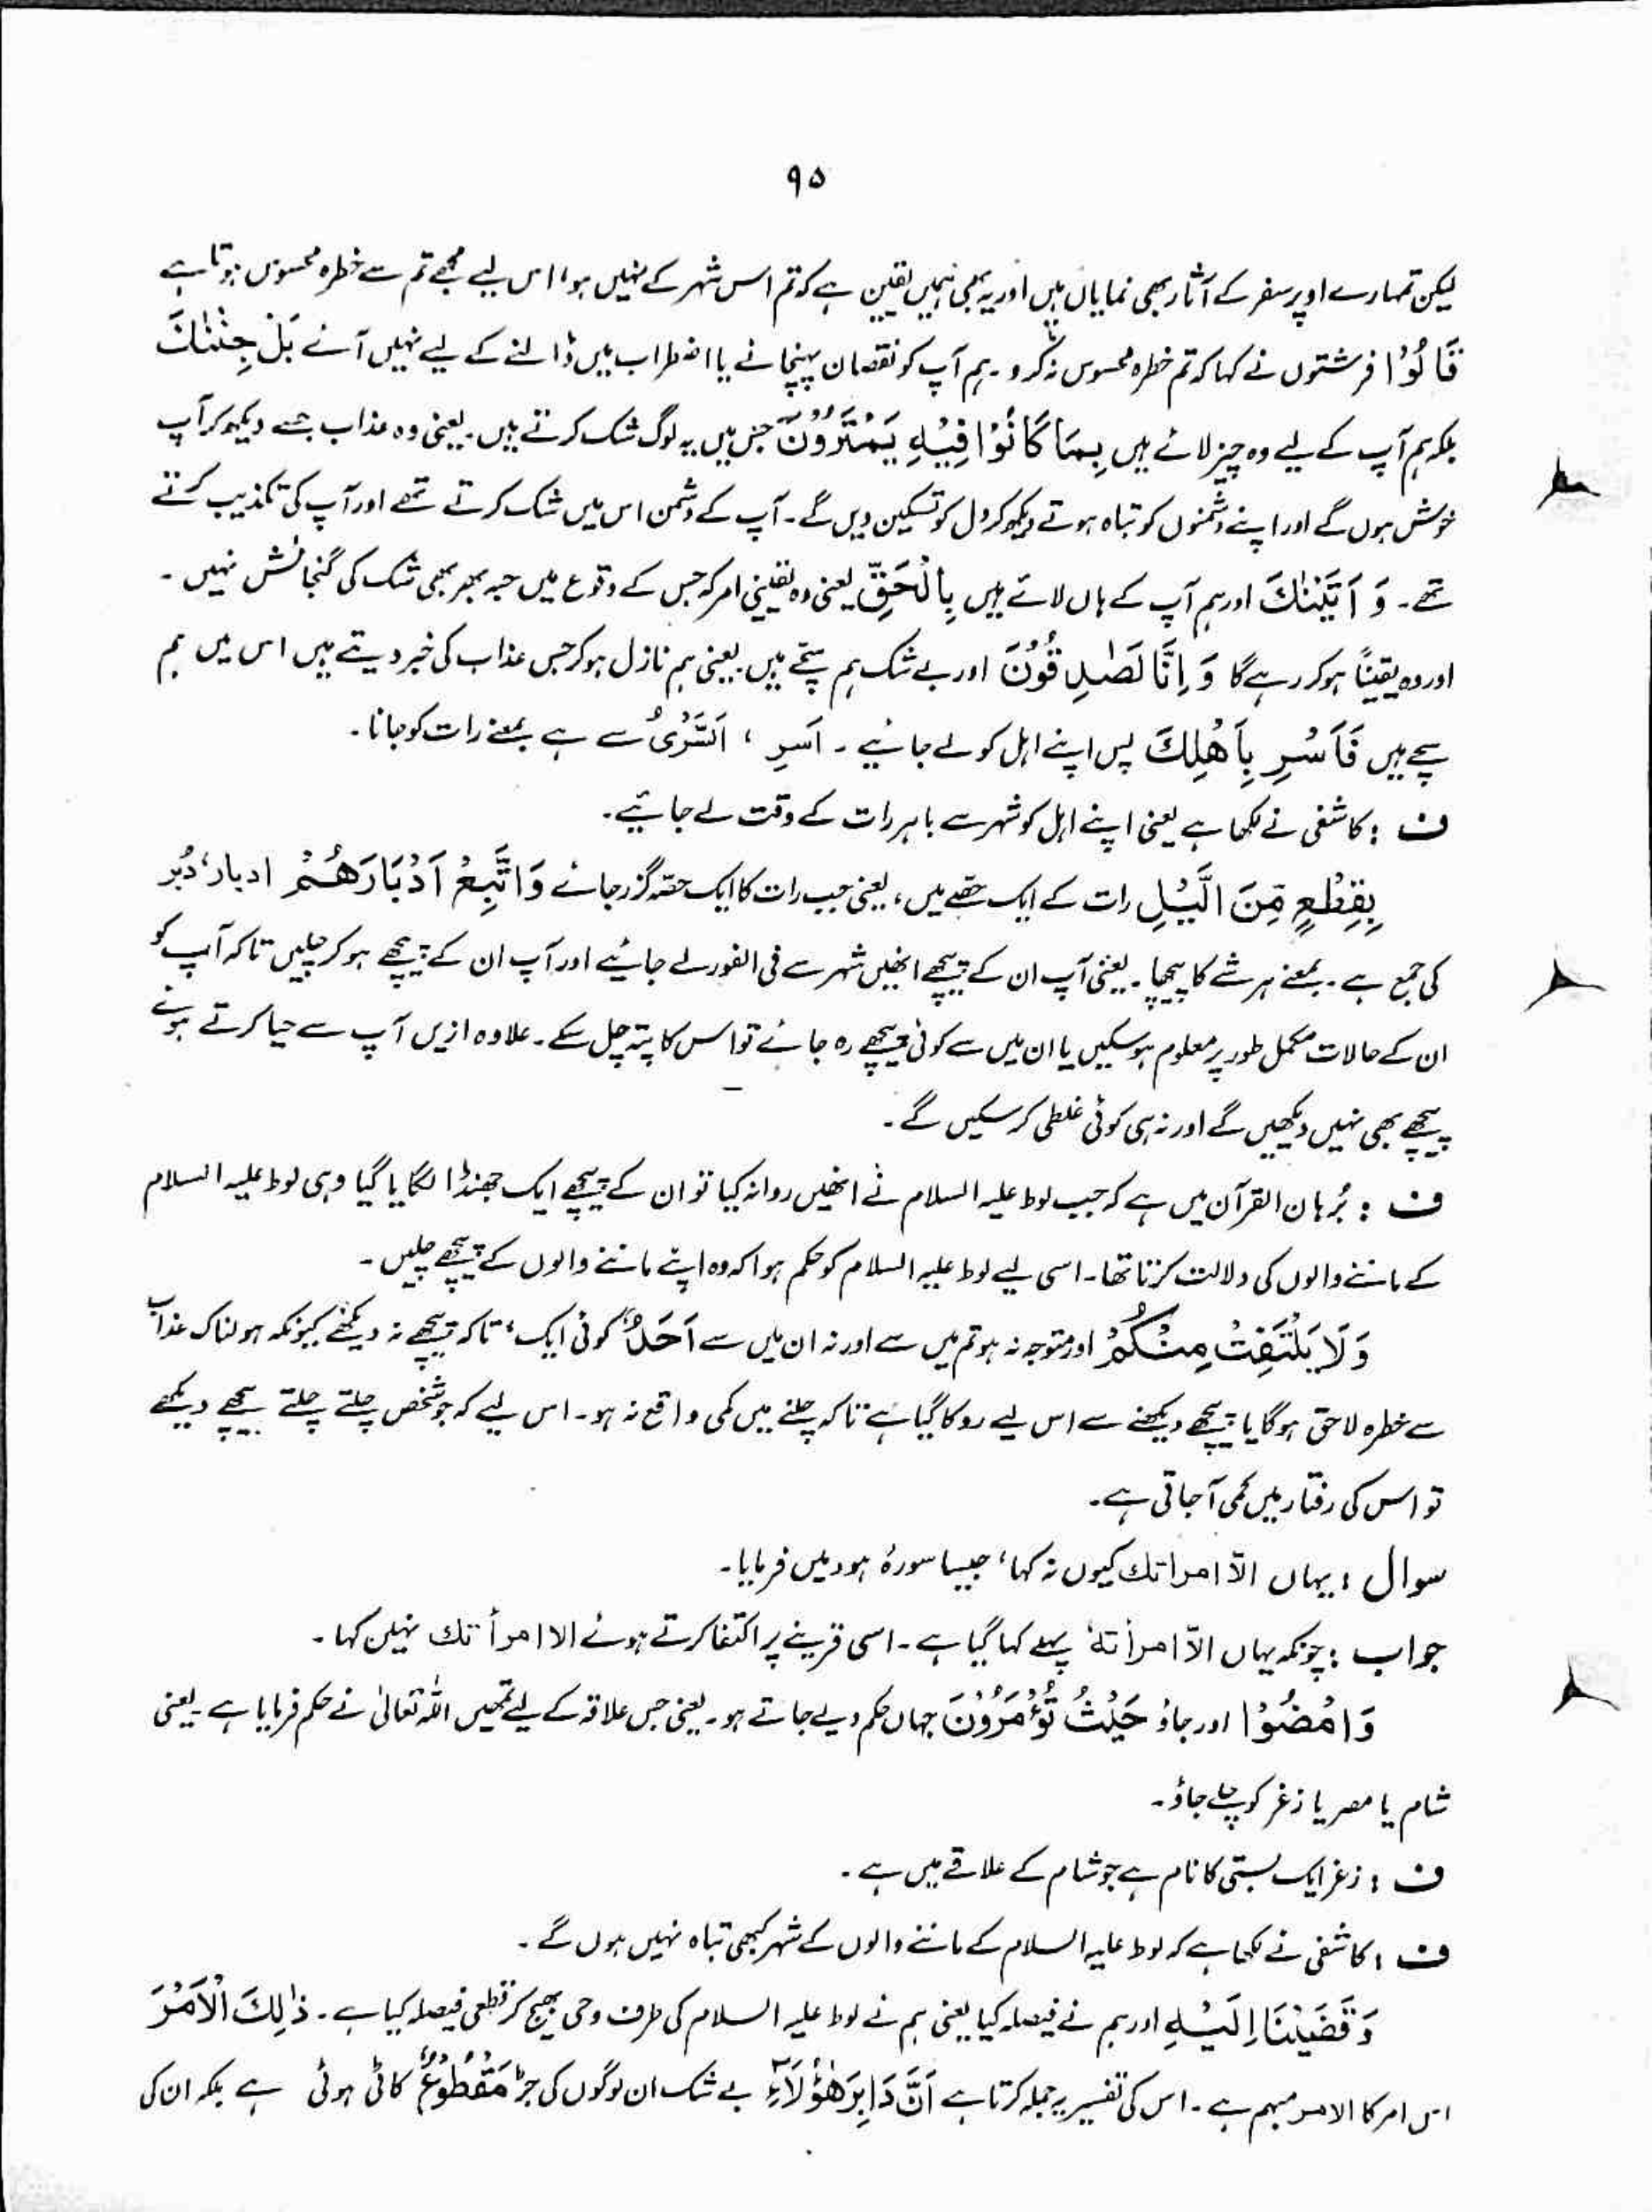 ۹۵
لیکن تمہارے اوپر سفر کے آثار بھی نمایاں ہیں اور یہ بھی ہمیں یقین ہے کہ تم اس شہر کے نہیں ہو، اس لیے مجھے تم سے خطرہ محسوس ہوتا ہے
قَالُوْا فرشتوں نے کہا کہ تم خطرہ محسوس نہ کرو۔ ہم آپ کو نقصان پہنچانے یا اضطراب میں ڈالنے کے لیے نہیں آئے بَلْ جِئْنٰكَ
بلکہ ہم آپ کے لیے وہ چیز لائے ہیں بِمَا كَانُوْا فِيْهِ يَمْتَرُوْنَ جس میں یہ لوگ شک کرتے ہیں۔ یعنی وہ عذاب جسے دیکھ کر آپ
خوش ہوں گے اور اپنے دشمنوں کو تباہ ہوتے دیکھ کر دل کو تسکین دیں گے۔ آپ کے دشمن اس میں شک کرتے تھے اور آپ کی تکذیب کرتے
تھے۔ وَ اَتَيْنٰكَ اور ہم آپ کے ہاں لائے ہیں بِالْحَقِّ یعنی وہ یقینی امر کہ جس کے وقوع میں حبہ بھر بھی شک کی گنجائش نہیں۔
اور وہ یقیناً ہو کر رہے گا وَ اِنَّا لَصٰدِقُوْنَ اور بے شک ہم سچے ہیں۔ یعنی ہم نازل ہو کر جس عذاب کی خبر دیتے ہیں اس میں ہم
سچے ہیں فَاَسْرِ بِاَهْلِكَ پس اپنے اہل کو لے جائیے۔ اَسرِ ، اَلسُّرٰی سے ہے بمعنے رات کو جانا۔
ف : کاشفی نے لکھا ہے یعنی اپنے اہل کو شہر سے باہر رات کے وقت لے جائیے۔
بِقِطْعٍ مِّنَ الَّيْلِ رات کے ایک حصے میں، یعنی جب رات کا ایک حصہ گزر جائے وَاتَّبِعْ اَدْبَارَهُمْ ادبار، دُبر
کی جمع ہے۔ بمعنے ہر شے کا پیچھا۔ یعنی آپ ان کے پیچھے انھیں شہر سے فی الفور لے جائیے اور آپ ان کے پیچھے ہو کر چلیں تاکہ آپ کو
ان کے حالات مکمل طور پر معلوم ہو سکیں یا ان میں سے کوئی پیچھے رہ جائے تو اس کا پتہ چل سکے۔ علاوہ ازیں آپ سے حیا کرتے ہوئے
پیچھے بھی نہیں دیکھیں گے اور نہ ہی کوئی غلطی کر سکیں گے۔
ف : بُرہان القرآن میں ہے کہ جب لوط علیہ السلام نے انھیں روانہ کیا تو ان کے پیچھے ایک جھنڈا لگایا گیا وہی لوط علیہ السلام
کے ماننے والوں کی دلالت کرتا تھا۔ اسی لیے لوط علیہ السلام کو حکم ہوا کہ وہ اپنے ماننے والوں کے پیچھے چلیں۔
وَلَا يَلْتَفِتْ مِنْكُمْ اور متوجہ نہ ہو تم میں سے اور نہ ان میں سے اَحَدٌ کوئی ایک، تاکہ پیچھے نہ دیکھے کیونکہ ہولناک عذاب
سے خطرہ لاحق ہوگا یا پیچھے دیکھنے سے اس لیے روکا گیا ہے تاکہ چلنے میں کمی واقع نہ ہو۔ اس لیے کہ جو شخص چلتے چلتے پیچھے دیکھے
تو اس کی رفتار میں کمی آ جاتی ہے۔
سوال : یہاں الّا امراتك کیوں نہ کہا، جیسا سورۂ ہود میں فرمایا۔
جواب : چونکہ یہاں الّا امرأتهٗ پہلے کہا گیا ہے۔ اسی قرینے پر اکتفا کرتے ہوئے الا امرأتك نہیں کہا۔
وَامْضُوْا اور جاؤ حَيْثُ تُؤْمَرُوْنَ جہاں حکم دیے جاتے ہو۔ یعنی جس علاقہ کے لیے تمھیں اللہ تعالیٰ نے حکم فرمایا ہے یعنی
شام یا مصر یا زغر کو چلے جاؤ۔
ف : زغر ایک بستی کا نام ہے جو شام کے علاقے میں ہے۔
ف : کاشفی نے لکھا ہے کہ لوط علیہ السلام کے ماننے والوں کے شہر کبھی تباہ نہیں ہوں گے۔
وَقَضَيْنَا اِلَيْهِ اور ہم نے فیصلہ کیا یعنی ہم نے لوط علیہ السلام کی طرف وحی بھیج کر قطعی فیصلہ کیا ہے۔ ذٰلِكَ الْاَمْرَ
اس امر کا الامر مبہم ہے۔ اس کی تفسیر یہ جملہ کرتا ہے اَنَّ دَابِرَ هٰۤؤُلَآءِ بے شک ان لوگوں کی جڑ مَقْطُوْعٌ کاٹی ہوئی ہے بلکہ ان کی